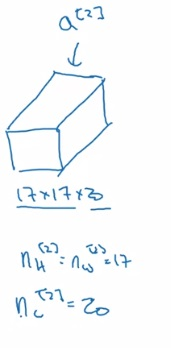 a^[2]
17×17×20
n_H^[2] = n_W^[2] = 17
n_C^[2] = 20